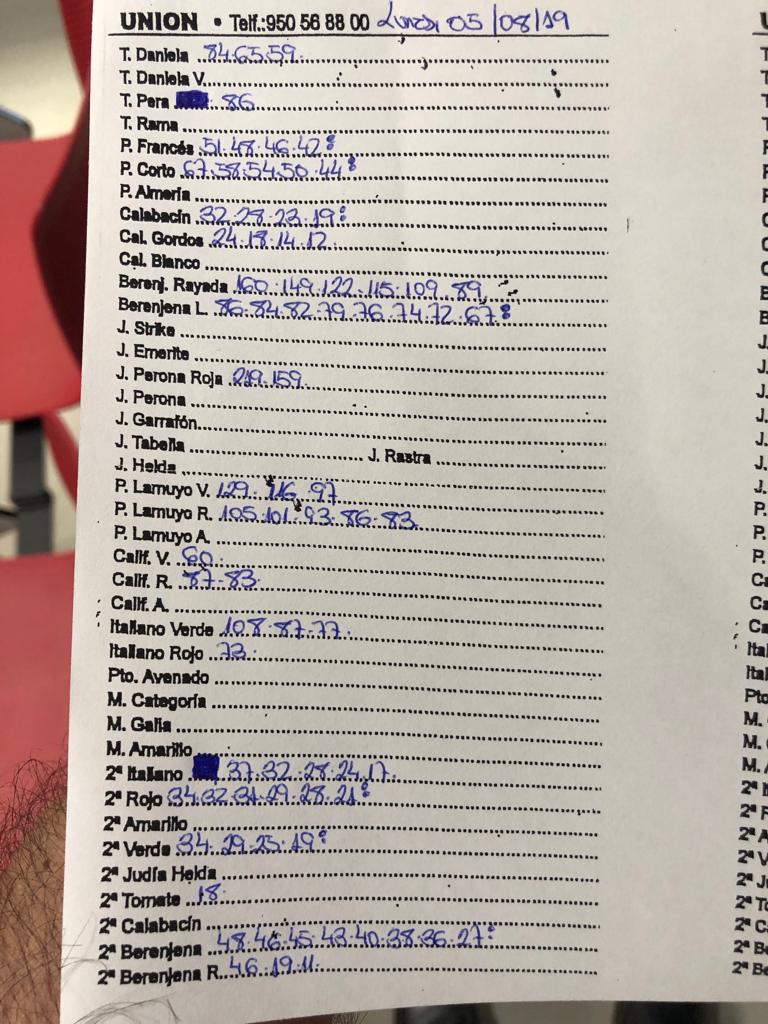 UNION • Telf.:950 56 88 00 Lunes, 05/08/19
T. Daniela 84.65.59.
T. Daniela V.
T. Pera 86
T. Rama
P. Francés 51.48.46.42
P. Corto 67.58.54.50.44
P. Almería
Calabacín 32.28.23.19
Cal. Gordos 24.18.14.12
Cal. Blanco
Berenj. Rayada 160.149.122.115.109.89
Berenjena L. 86.84.82.79.76.74.72.67
J. Strike
J. Emerite
J. Perona Roja 219.159
J. Perona
J. Garrafón
J. Tabella J. Rastra
J. Helda
P. Lamuyo V. 129. 116. 97
P. Lamuyo R. 105.101.93.86.83
P. Lamuyo A.
Calif. V. 60.
Calif. R. 87.83.
Calif. A.
Italiano Verde 108.87.77.
Italiano Rojo 73.
Pto. Avenado
M. Categoría
M. Galia
M. Amarillo
2ª Italiano 37.32.28.24.17.
2ª Rojo 34.32.31.29.28.21
2ª Amarillo
2ª Verde 34.29.25.19
2ª Judía Helda
2ª Tomate 18.
2ª Calabacín
2ª Berenjena 48.46.45.43.40.38.36.27
2ª Berenjena R. 46.19.11.